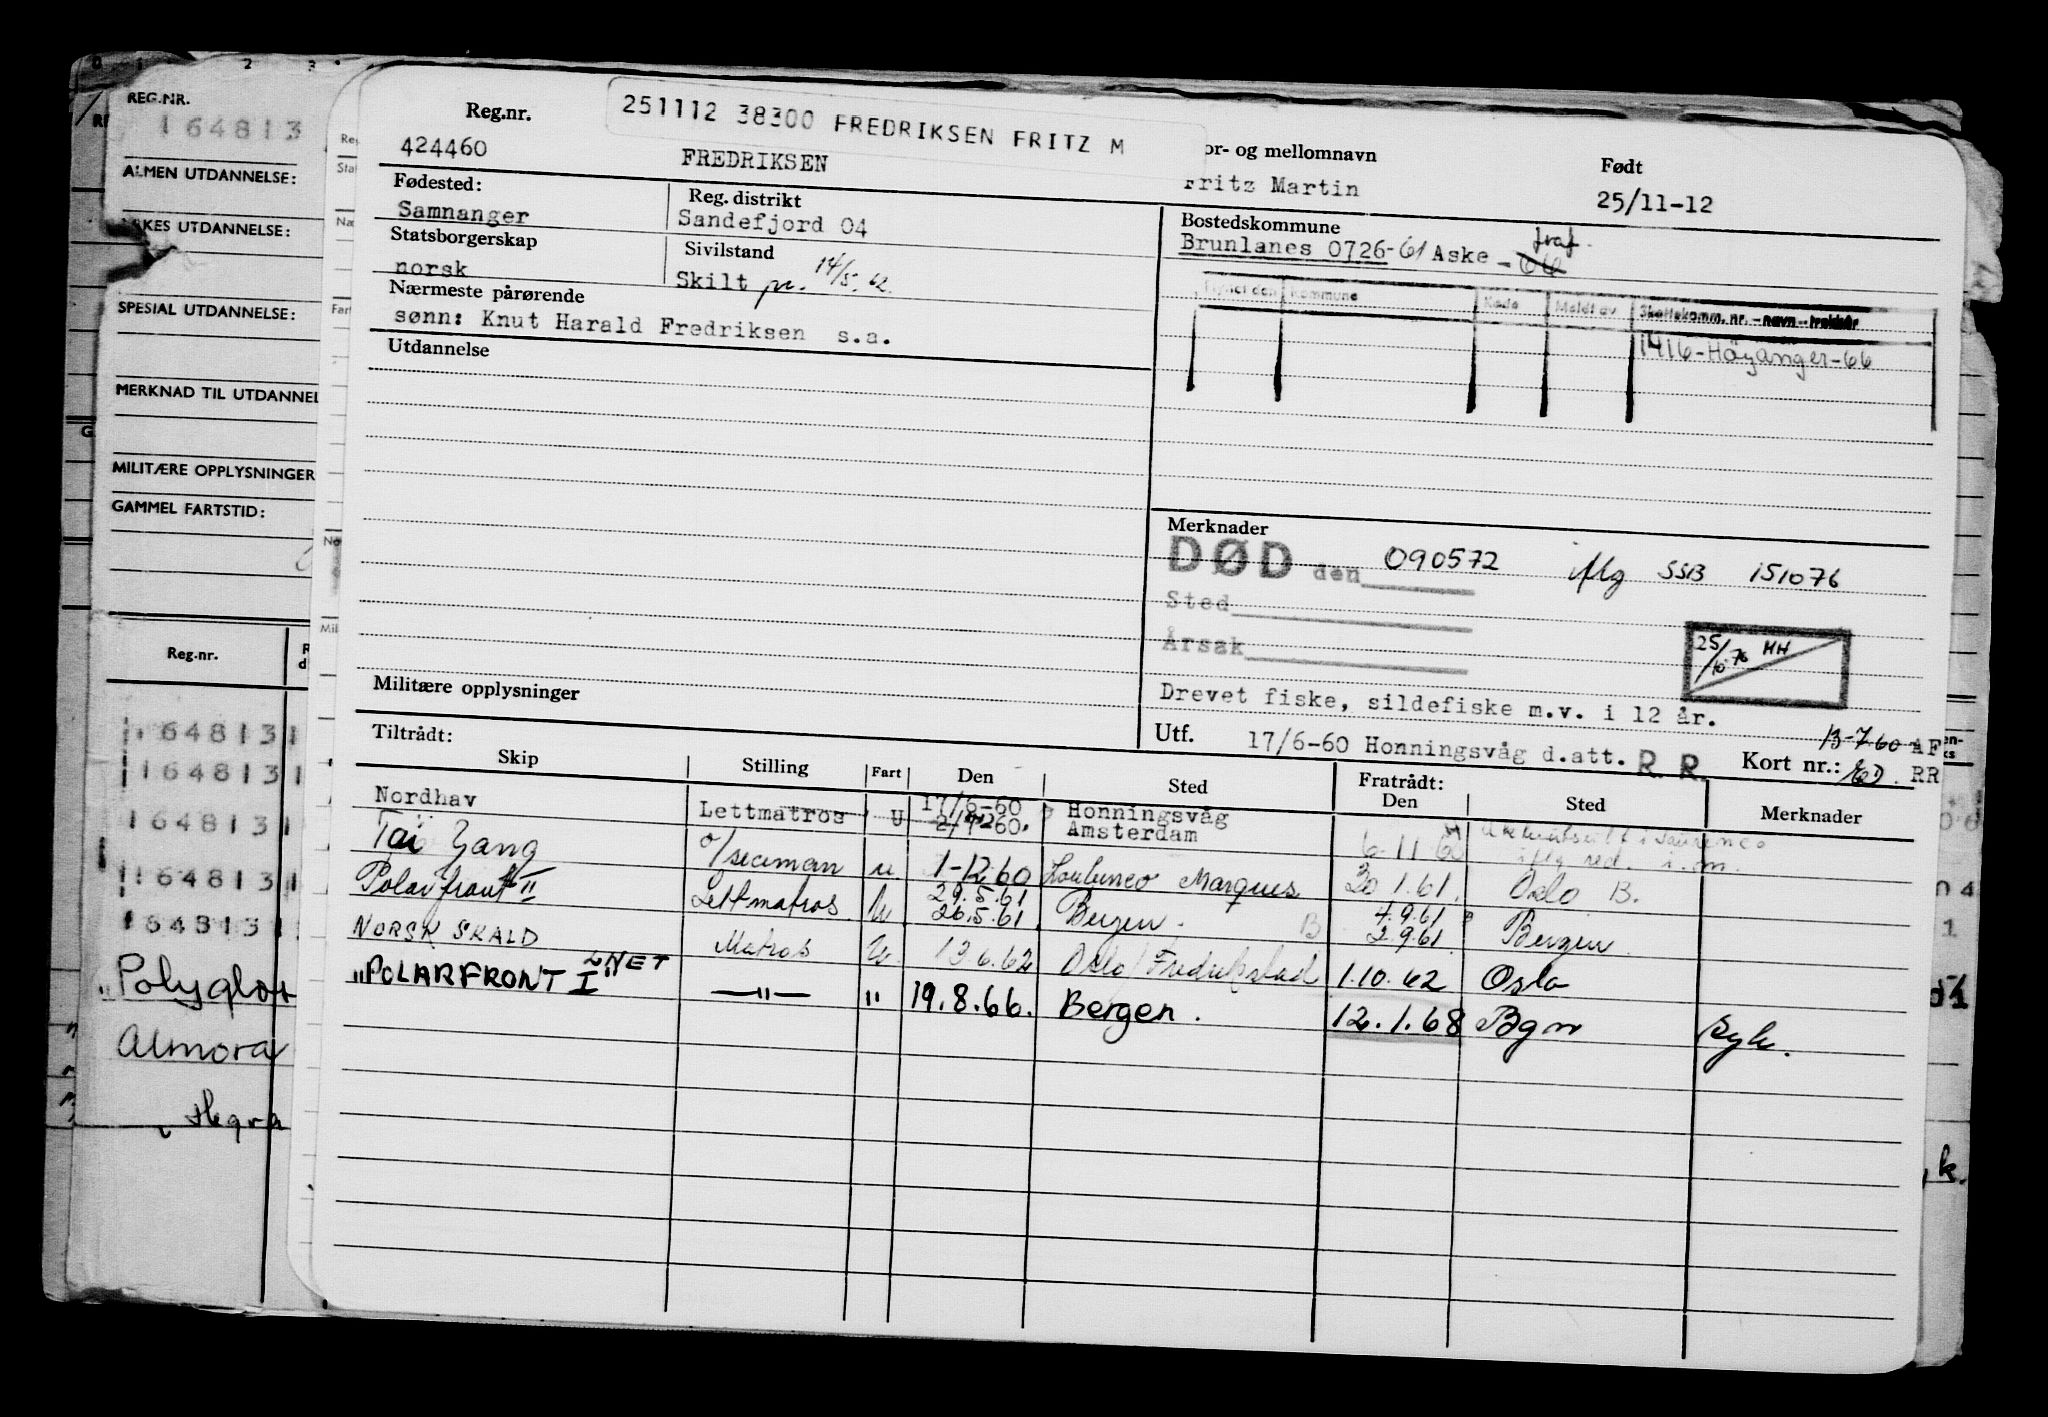 0 1 2 3
REG.NR.
164813
ALMEN UTDANNELSE:
UTDANNELSE:
SPESIAL UTDANNELSE:
MERKNAD TIL UTDANNEL
MILITÆRE OPPLYSNINGER
GAMMEL FARTSTID:
Reg.nr.
164813
164813
164813
164813
164813
"Polyglot
Almora
Hegra
251112 38300 FREDRIKSEN FRITZ M
Reg.nr.
424460
FREDRIKSEN
or- og mellomnavn
Fritz Martin
Født
25/11-12
Fødested:
Samnanger
Reg. distrikt
Sandefjord 04
Bostedskommune
Brunlanes 0726-61 Aske - 66
Statsborgerskap
norsk
Sivilstand
Skilt pr. 14/5-62
Nærmeste pårørende
sønn: Knut Harald Fredriksen s.a.
Kommune Kode Meldt av Skattekomm. nr. - navn - trekkår
1416-Höyanger-66
Utdannelse
Merknader
DØD den 090572 iflg SSB 151076
Sted
Årsak
25/10-76 HH
Drevet fiske, sildefiske m.v. i 12 år.
Militære opplysninger
Utf. 17/6-60 Honningsvåg d.att. R R
13-7-60 AF
Kort nr.: RR
Tiltrådt:
Skip Stilling Fart Den Sted Fratrådt: Den Sted Merknader
Nordhav Lettmatros U 17/6-60 Honningsvåg
2/7-60. Amsterdam 6-11 60
Tai Yang o/seaman u 1-12.60 Marques 20 1.61. Oslo B.
Polarfront II Lettmatros U 29.5.61 26.5.61 Bergen. B 4.9.61 2.9.61 Bergen
NORSK SKALD Matros U. 13.6.62 Oslo/Fredrikstad 1.10.62 Oslo
"POLARFRONT I" ~NET —"— " 19.8.66. Bergen. 12.1.68 Bgn Syk.